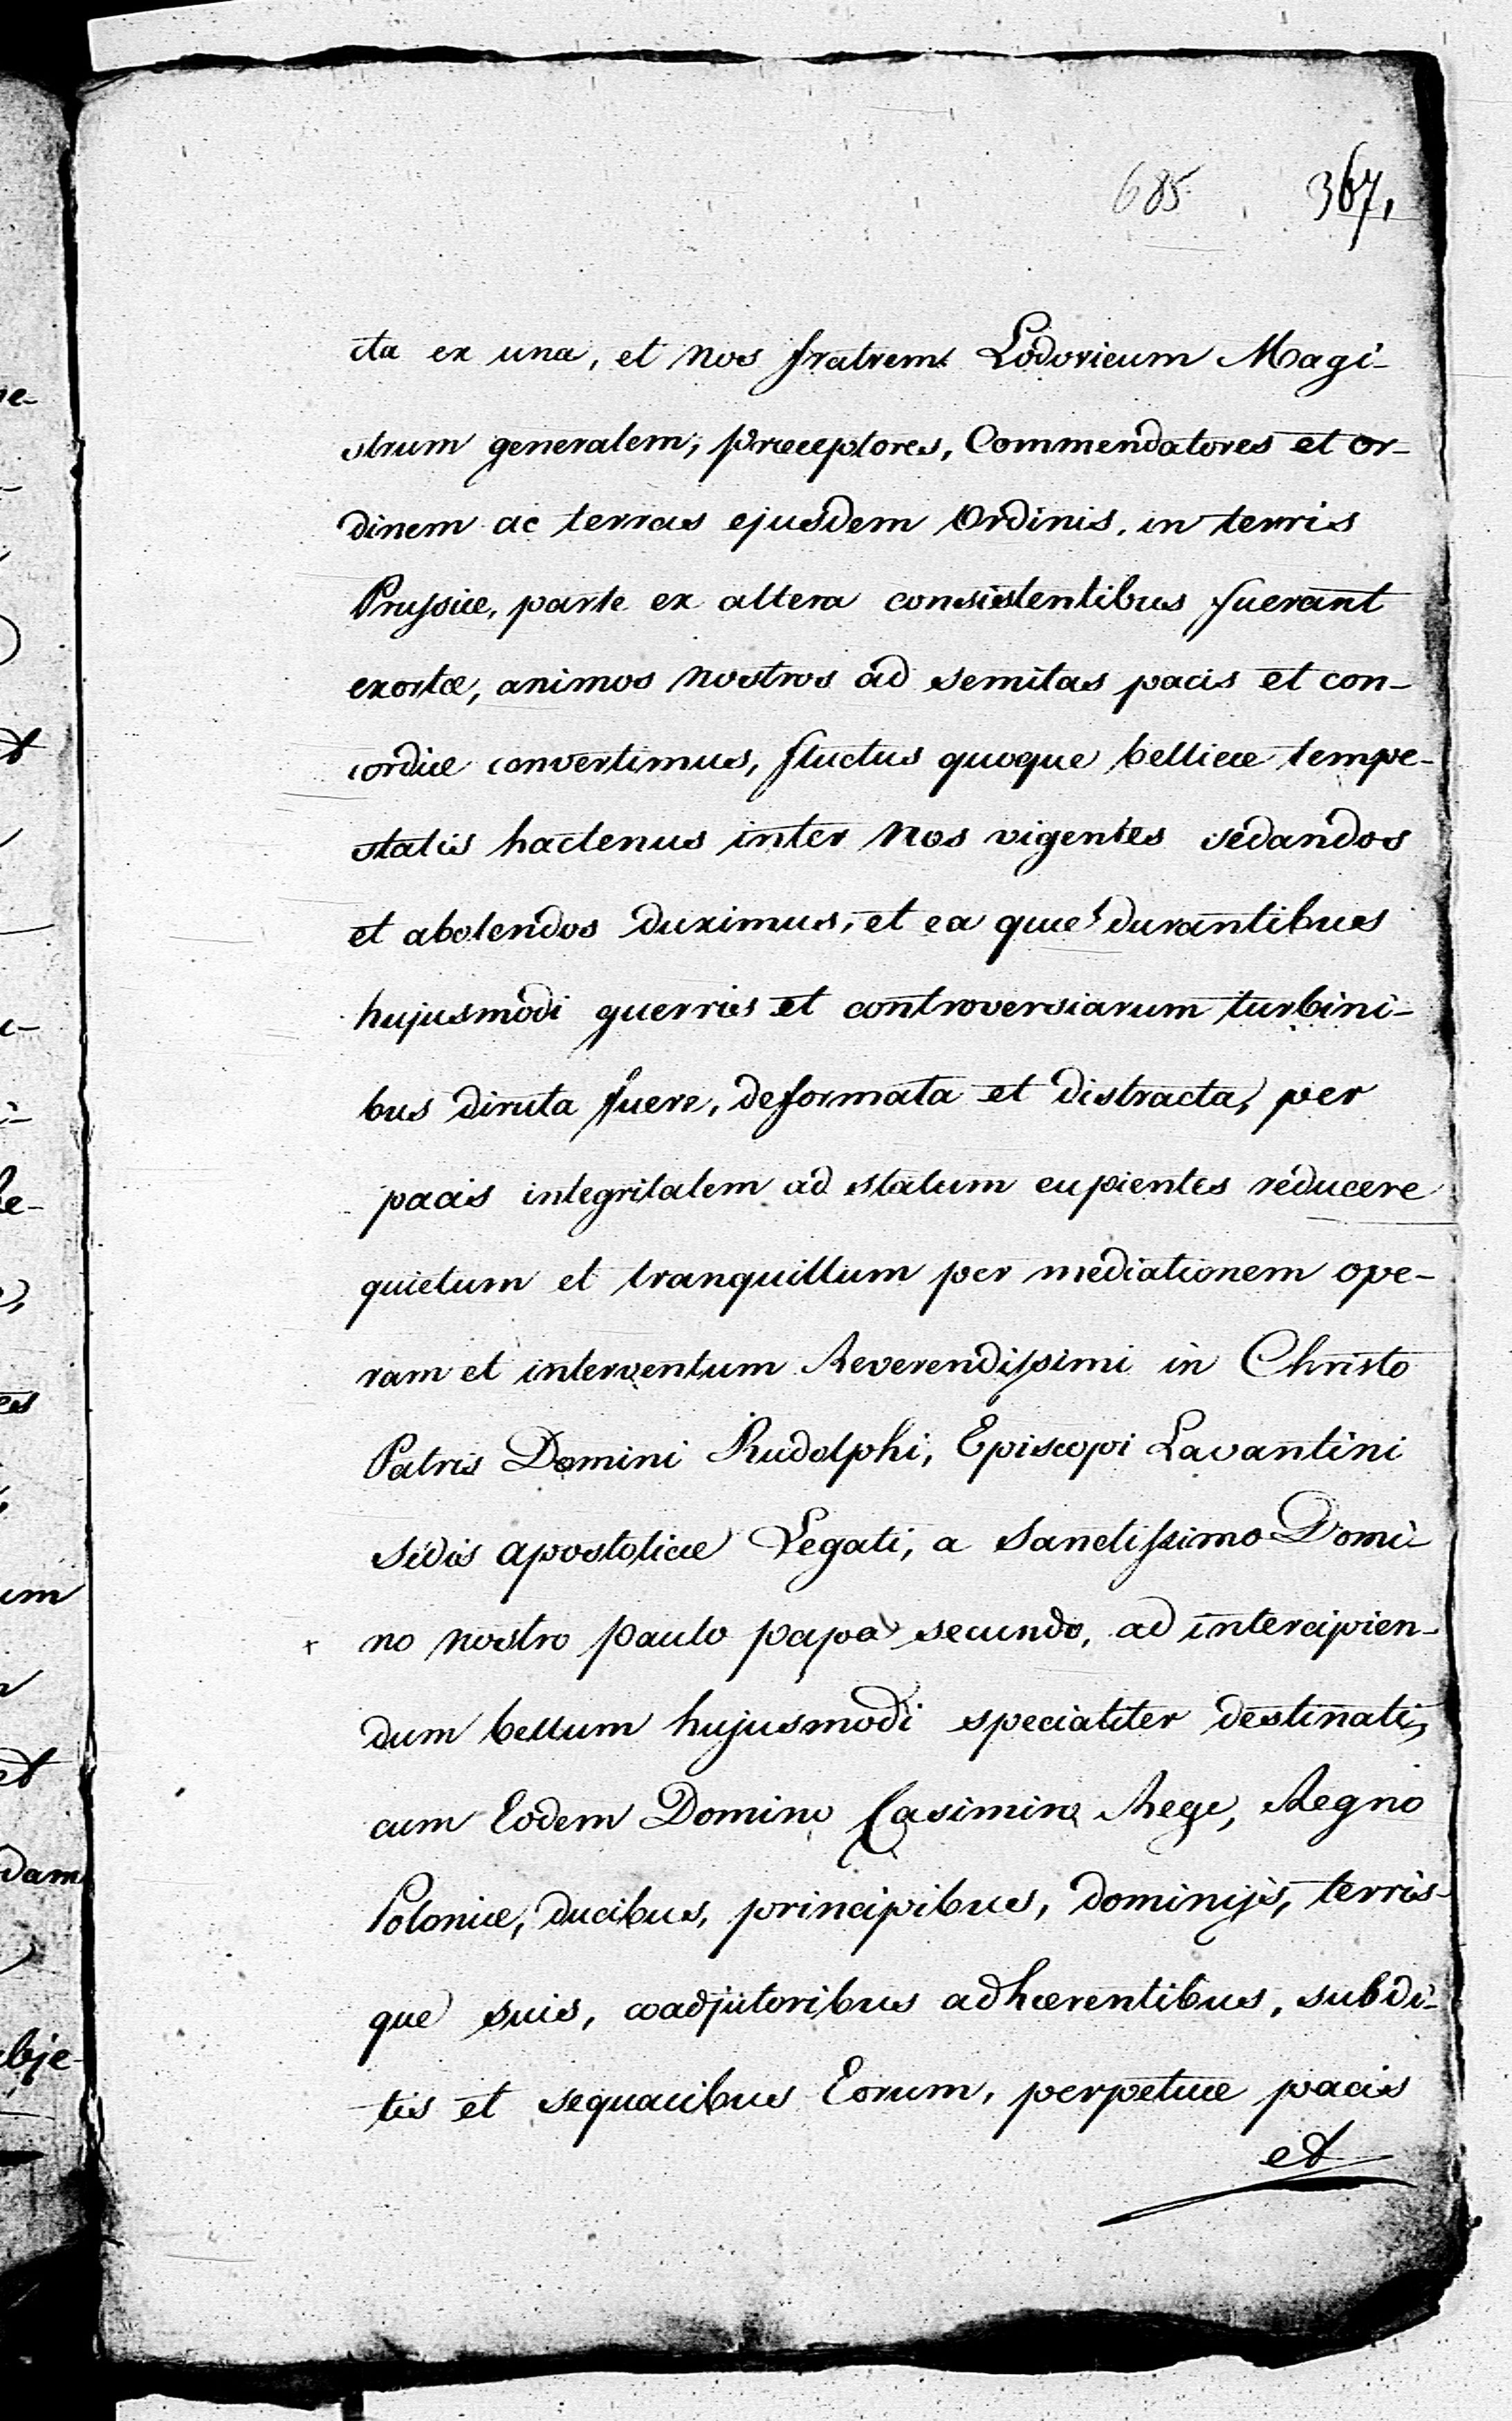 685. 367,
cta ex una, et nos fratrem Lodovicum Magi-
strum generalem, præceptores, Commendatores et or-
dinem ac terras ejusdem Ordinis, in terris
Prussiæ, parte ex altera consistentibus fuerant
exortæ, animos nostros ad semitas pacis et con-
cordiæ convertimus, fluctus quoque bellicæ tempe-
statis hactenus inter nos vigentes sedandos
et abolendos duximus, et ea quæ durantibus
hujusmodi guerris et controversiarum turbini-
bus diruta fuere, deformata et distracta, per
pacis integritatem ad statum cupientes reducere
quietum et tranquillum per mediationem ope-
ram et interventum Reverendissimi in Christo
Patris Domini Rudolphi, Episcopi Lavantini
sedis apostolicæ Legati, a Sanctissimo Domi-
no nostro paulo papa secundo, ad intercipien-
dum bellum hujusmodi specialiter destinati,
cum Eodem Domino Casimiro Rege, Regno
Poloniæ, ducibus, principibus, dominijs, terris-
que suis, coadjutoribus adhærentibus, subdi-
tis et sequacibus Eorum, perpetuæ pacis
et